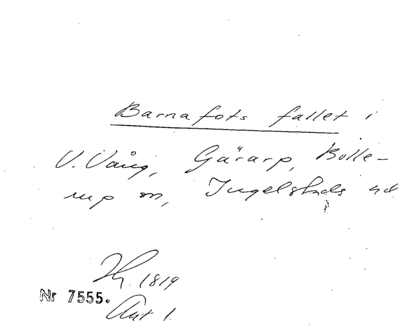 Barnafots fallet i
V. Vång, Gärarp, Bolle-
rup sn, Ingelstads hd
1819
Nr 7555.
Aut 1.